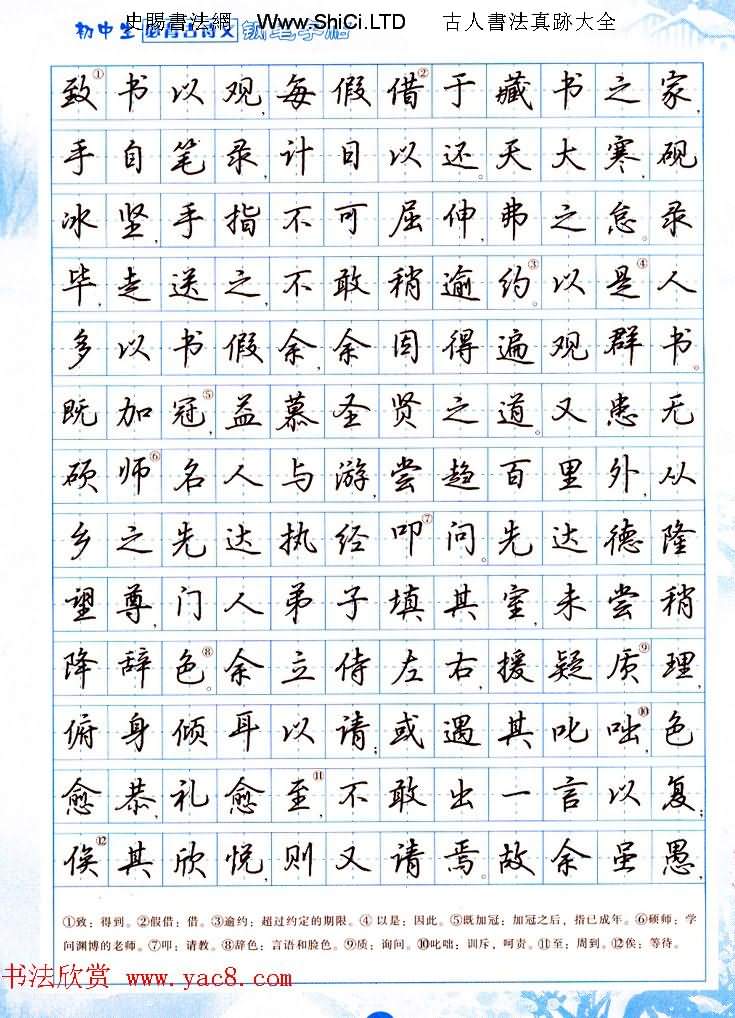 史賜書法網 www.ShiCi.LTD 古人書法真跡大全
初中生必背古诗文钢笔字帖
致①书以观，每假借②于藏书之家，
手自笔录，计日以还。天大寒，砚
冰坚，手指不可屈伸，弗之怠。录
毕，走送之，不敢稍逾约③。以是④人
多以书假余，余因得遍观群书。
既加冠⑤，益慕圣贤之道。又患无
硕师⑥名人与游，尝趋百里外，从
乡之先达执经叩⑦问。先达德隆
望尊，门人弟子填其室，未尝稍
降辞色⑧。余立侍左右，援疑质⑨理，
俯身倾耳以请；或遇其叱咄⑩，色
愈恭，礼愈至⑪，不敢出一言以复；
俟⑫其欣悦，则又请焉。故余虽愚，
①致：得到。②假借：借。③逾约：超过约定的期限。④以是：因此。⑤既加冠：加冠之后，指已成年。⑥硕师：学
问渊博的老师。⑦叩：请教。⑧辞色：言语和脸色。⑨质：询问。⑩叱咄：训斥，呵责。⑪至：周到。⑫俟：等待。
书法欣赏 www.yac8.com